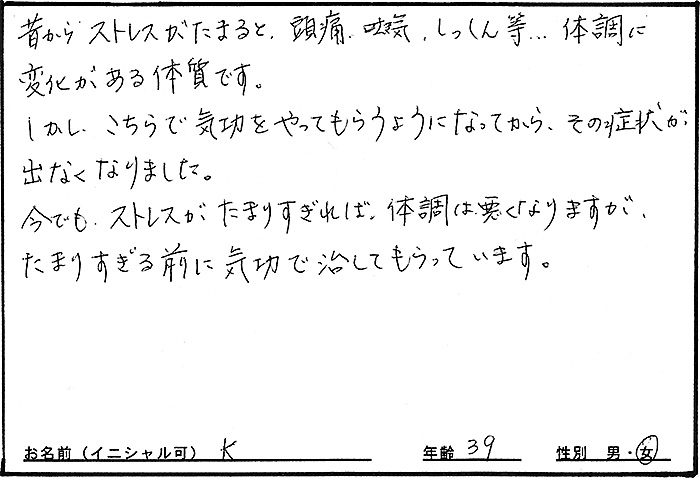 昔からストレスがたまると、頭痛、吐気、しっしん等…体調に
変化がある体質です。
しかし、こちらで気功をやってもらうようになってから、その症状が
出なくなりました。
今でも、ストレスがたまりすぎれば、体調は悪くなりますが、
たまりすぎる前に気功で治してもらっています。
お名前(イニシャル可) K 年齢 39 性別 男・女